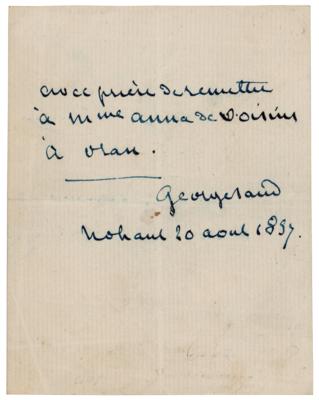 avec prière de remettre
à mme anna de Voisins
à oran.
George Sand
Nohant 20 aout 1857.